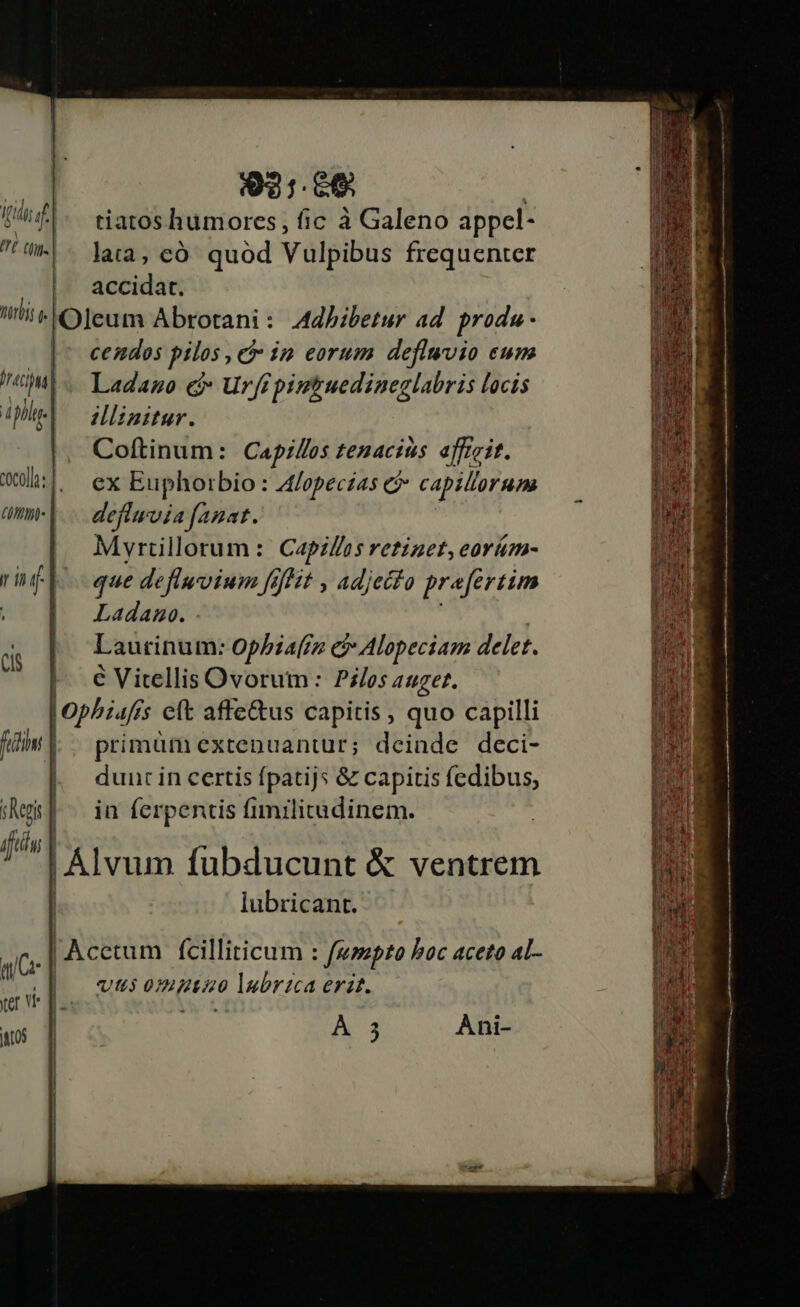 5.
tiatos humores, ſic à Galeno appel-
lata, eò quòd Vulpibus frequenter
accidat.
Oleum Abrotani: Adhibetur ad produ-
cendos pilos, & in eorum defluvio cum
Ladano & Urſi pinguedine glabris locis
illinitur.
Coſtinum: Capillos tenaciùs affigit.
ex Euphorbio: Alopecias & capillorum
defluvia ſanat.
Myrtillorum: Capillos retinet, eorúm-
que defluvium ſiſtit, adjecto præſertim
Ladano.
Laurinum: Ophiaſin & Alopeciam delet.
è Vitellis Ovorum: Pilos auget.
Ophiaſis eſt affectus capitis, quo capilli
primùm extenuantur; deinde deci-
dunt in certis ſpatijs & capitis ſedibus,
in ſerpentis ſimilitudinem.
Alvum ſubducunt & ventrem
lubricant.
Acetum ſcilliticum: ſumpto hoc aceto al-
vus omnino lubrica erit.
A 3 Ani-